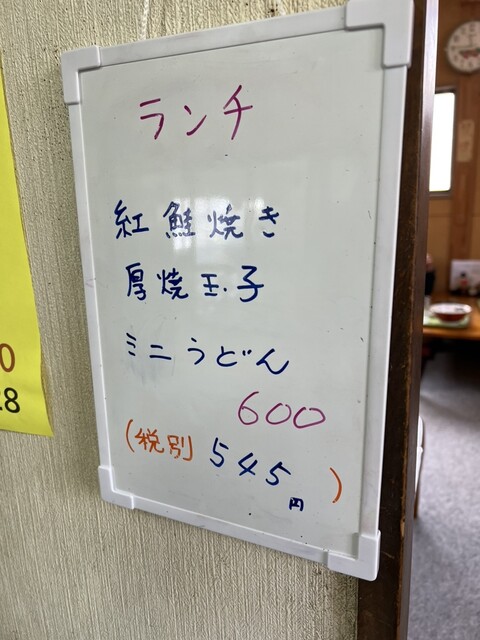 ランチ
紅鮭焼き
厚焼玉子
ミニうどん
600
(税別 545円)